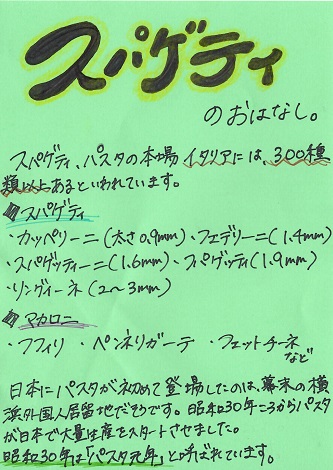 スパゲティ
のおはなし。
スパゲティ、パスタの本場イタリアには、300種
類以上あるといわれています。
スパゲティ
・カッペリーニ(太さ0.9mm)・フェデリーニ(1.4mm)
・スパゲッティーニ(1.6mm)・スパゲッティ(1.9mm)
・リングイーネ(2〜3mm)
マカロニ
・フフィリ ・ペンネリガーテ ・フェットチーネ
など
日本にパスタが初めて登場したのは、幕末の横
浜外国人居留地だそうです。昭和30年ころからパスタ
が日本で大量生産をスタートさせました。
昭和30年は「パスタ元年」と呼ばれています。